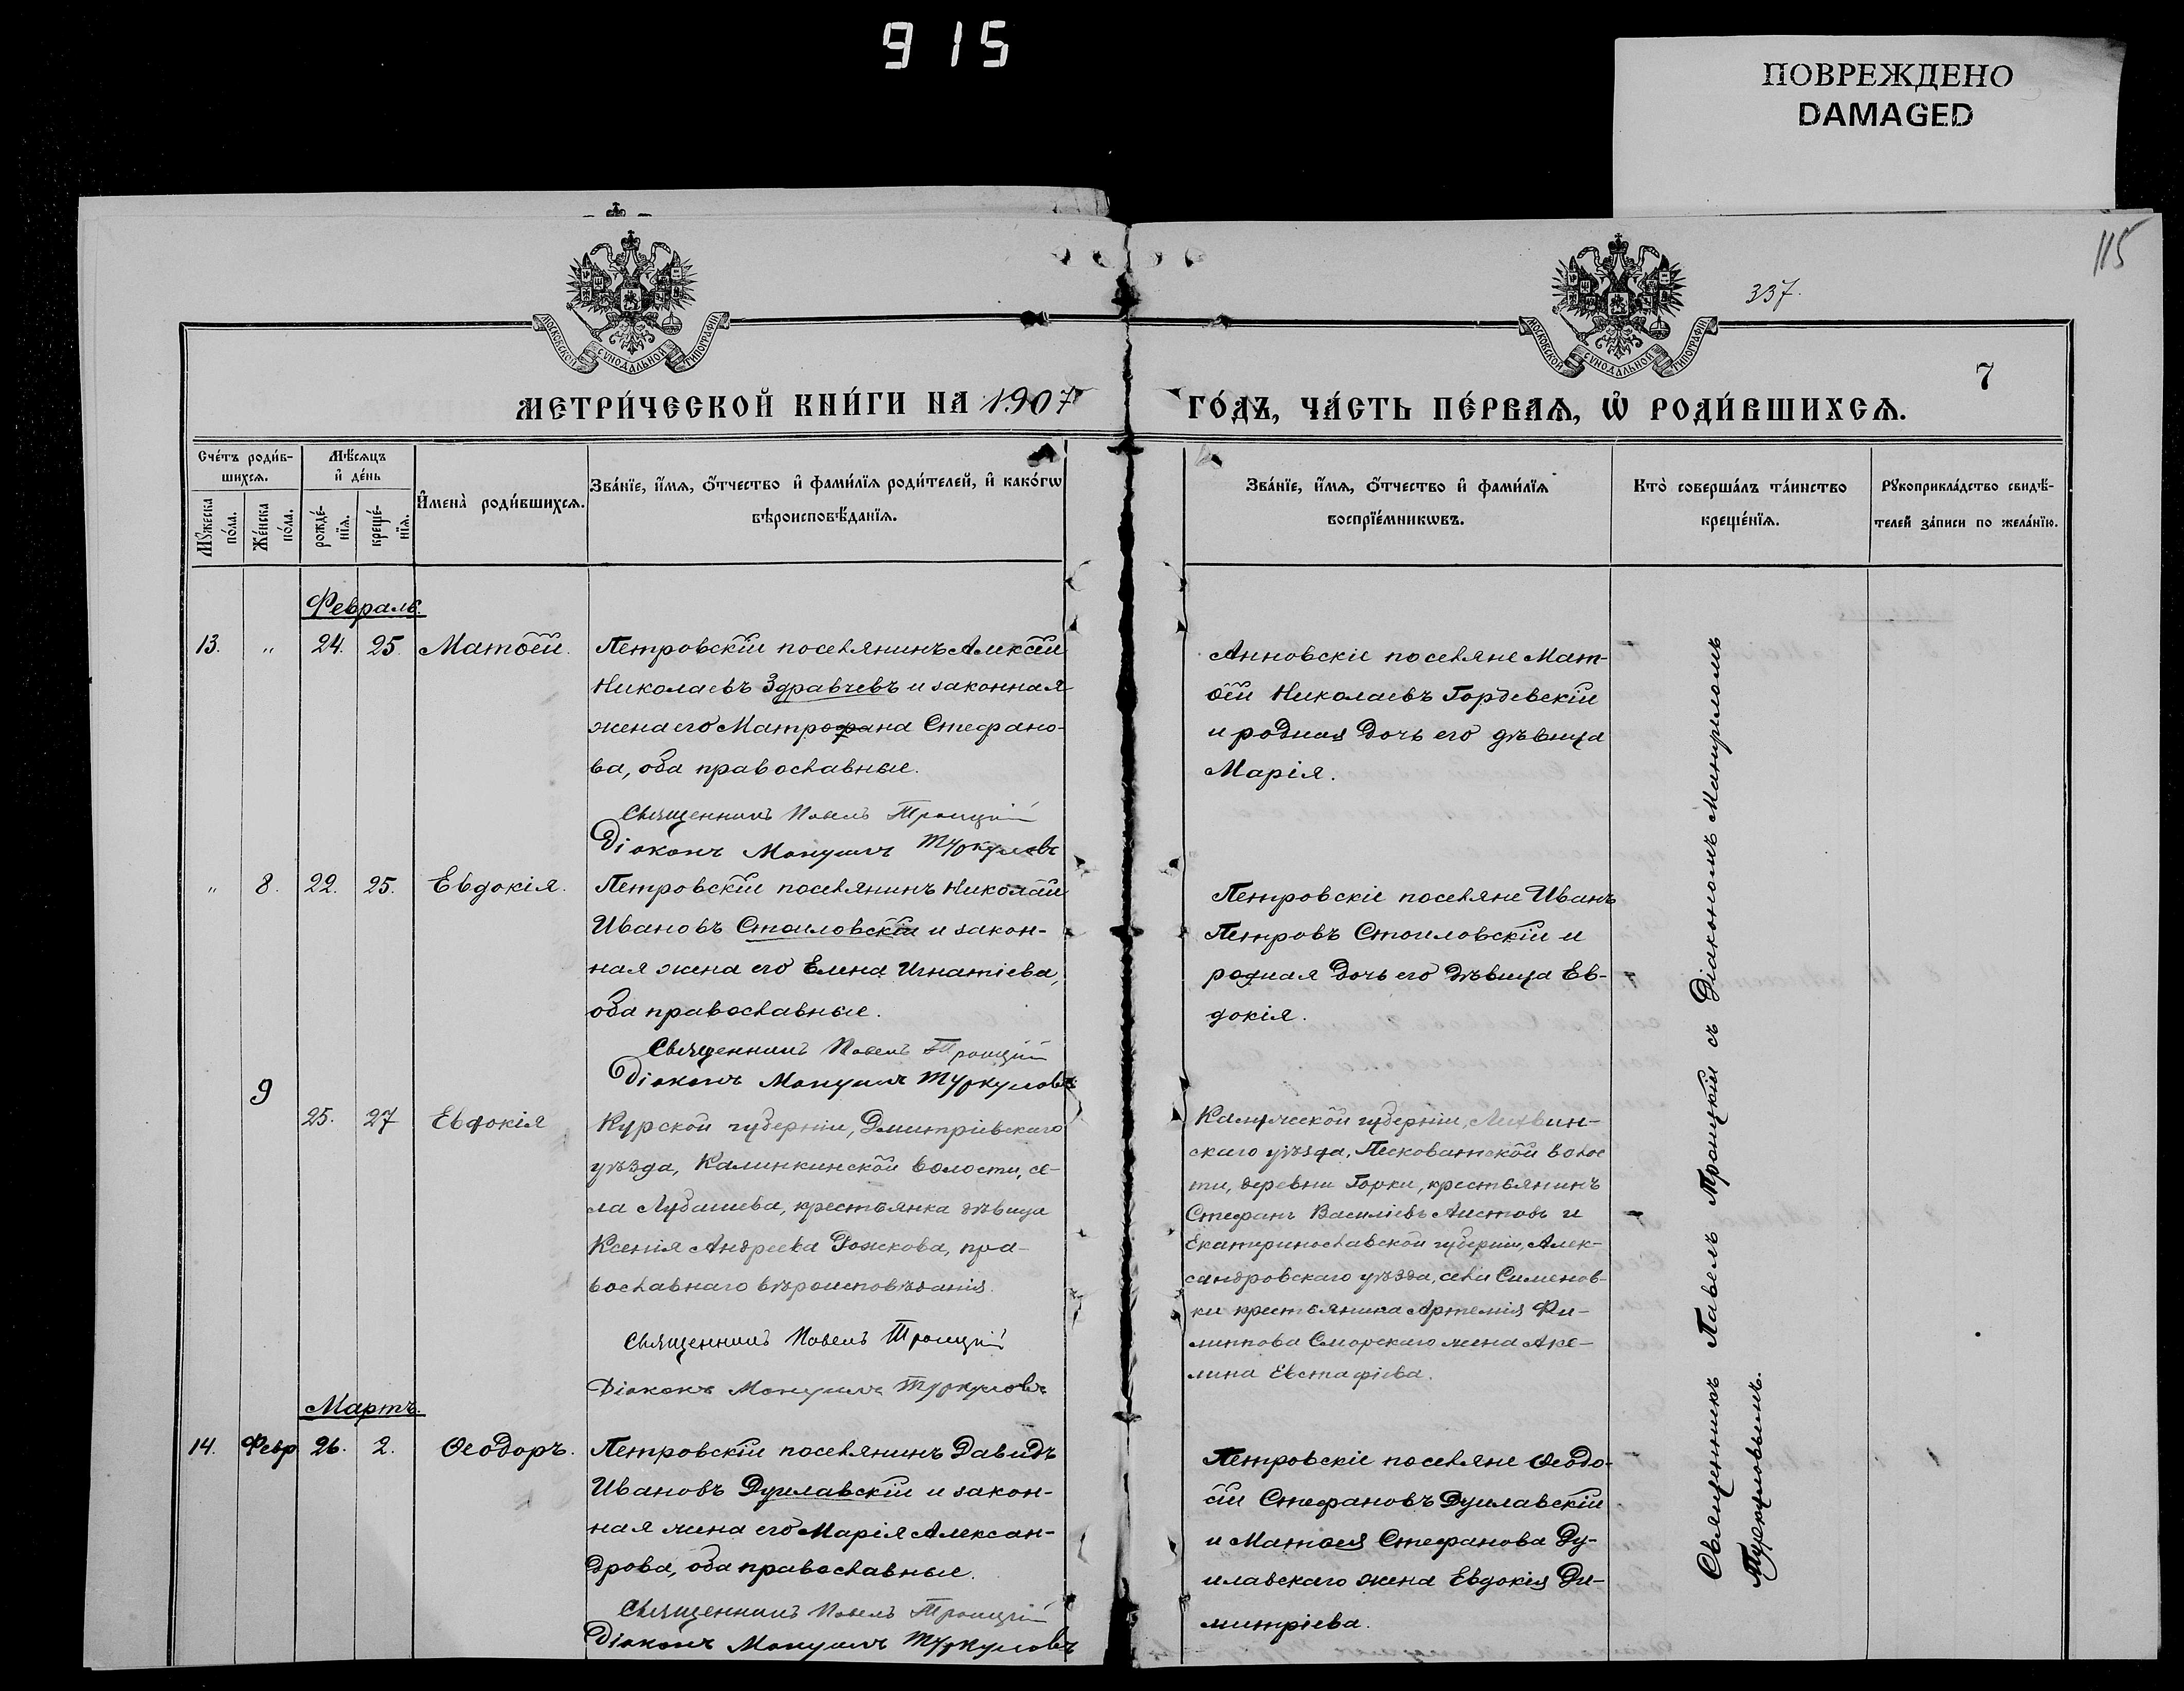 915
ПОВРЕЖДЕНО
DAMAGED
115
337.
7
МОСКОВСКОЙ СѴНОДАЛЬНОЙ ТИПОГРАФІИ
МОСКОВСКОЙ СѴНОДАЛЬНОЙ ТИПОГРАФІИ
МЕТРИ́ЧЕСКОЙ КНИ́ГИ НА 1907
ГО́ДЪ, ЧА́СТЬ ПЕ́РВАѦ, Ѽ РОДИ́ВШИХСѦ.
Сче́тъ роди́в-
шихсѧ.
Мѣ́сѧцъ
и҆ де́нь
Мꙋ́жеска
по́ла.
Же́нска
по́ла.
рожде́-
нїѧ.
креще́-
нїѧ.
И҆мена̀ роди́вшихсѧ.
Зва́нїе, и҆́мѧ, ѻ҆́тчество и҆ фами́лїѧ роди́телей, и҆ како́гѡ
вѣроисповѣ́данїѧ.
Зва́нїе, и҆́мѧ, ѻ҆́тчество и҆ фами́лїѧ
воспрїе́мникѡвъ.
Кто̀ соверша́лъ та́инство
креще́нїѧ.
Рꙋкоприкла́дство свидѣ́-
телей за́писи по жела́нїю.
Февраль.
13. " 24. 25. Матѳей.
Петровскій поселянинъ Алексѣй
Николаевъ Здравчевъ и законная
жена его Матрофана Стефано-
ва, оба православные.
Священникъ Павелъ Троицкій
Діаконъ Мануилъ Туркуловъ
Анновскіе поселяне Мат-
ѳей Николаевъ Гордевскій
и родная дочь его дѣвица
Марія.
" 8. 22. 25. Евдокія.
Петровскій поселянинъ Николай
Ивановъ Стоиловскій и закон-
ная жена его Елена Игнатіева,
оба православные.
Священникъ Павелъ Троицкій
Діаконъ Мануилъ Туркуловъ
Петровскіе поселяне Иванъ
Петровъ Стоиловскій и
родная дочь его дѣвица Ев-
докія.
9 25. 27 Евдокія
Курской губерніи, Дмитріевскаго
уѣзда, Калинкинской волости, се-
ла Лубашева, крестьянка дѣвица
Ксенія Андреева Рожкова, пра-
вославнаго вѣроисповѣданія.
Священникъ Павелъ Троицкій
Діаконъ Мануилъ Туркуловъ
Калужеской губерніи, Лихвин-
скаго уѣзда, Песковатской волос
ти, деревни Горки, крестьянинъ
Стефанъ Василіевъ Аистовъ и
Екатеринославской губерніи, Алек-
сандровскаго уѣзда, села Сименов-
ки крестьянина Артемія Фи-
липпова Сморскаго жена Аке-
лина Евстафіева.
Мартъ.
14. Февр 26. 2. Ѳеодоръ.
Петровскій поселянинъ Давидъ
Ивановъ Душлавскій и закон-
ная жена его Марія Алексан-
дрова, оба православные.
Священникъ Павелъ Троицкій
Діаконъ Мануилъ Туркуловъ
Петровскіе поселяне Ѳеодо-
сій Стефановъ Душлавскій
и Матѳея Стефанова Ду-
шлавскаго жена Евдокія Ди-
митріева.
Священникъ Павелъ Троицкій съ Діакономъ Мануиломъ
Туркуловымъ.